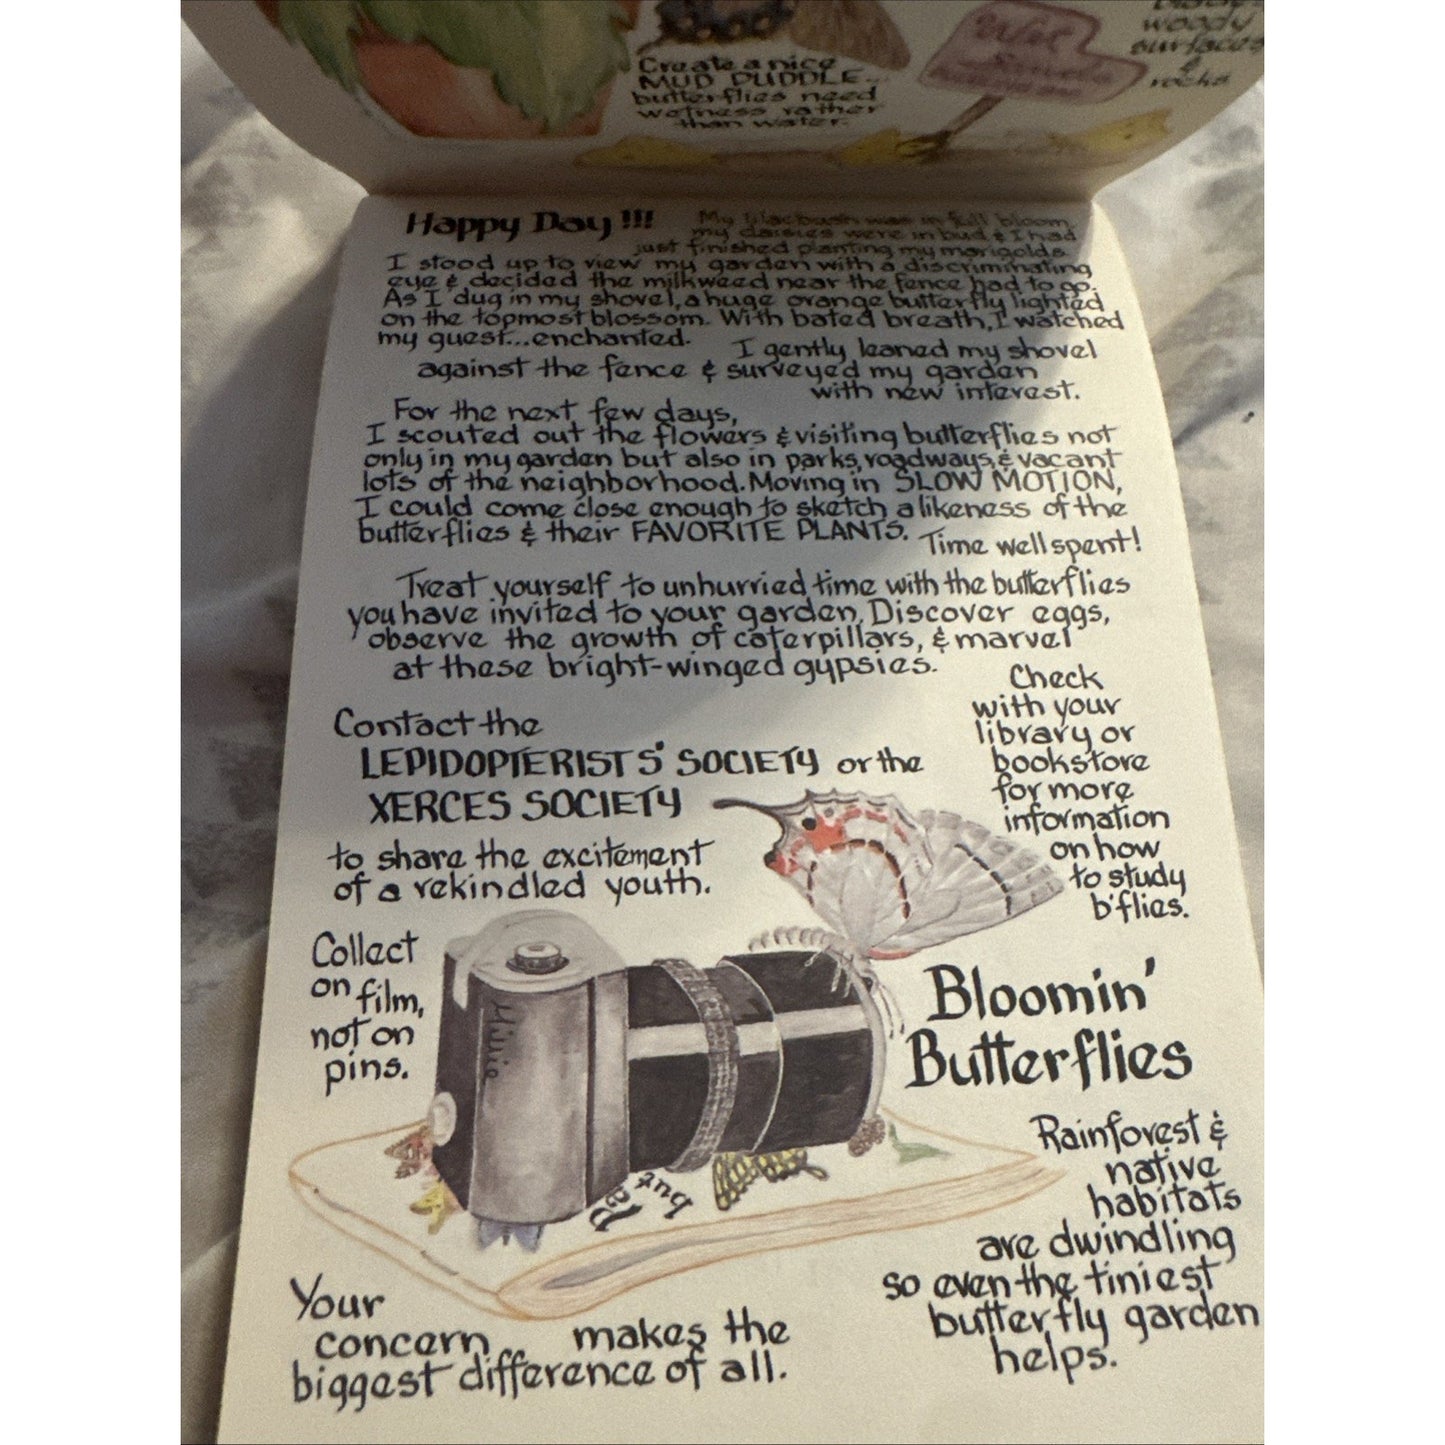 woody
surfaces
&
rocks
Create a nice
MUD PUDDLE...
butterflies need
wetness rather
than water.
Wet
Happy Day!!!
My lilac bush was in full bloom,
my daisies were in bud & I had
just finished planting my marigolds.
I stood up to view my garden with a discriminating
eye & decided the milkweed near the fence had to go.
As I dug in my shovel, a huge orange butterfly lighted
on the topmost blossom. With bated breath, I watched
my guest...enchanted.
I gently leaned my shovel
against the fence & surveyed my garden
with new interest.
For the next few days,
I scouted out the flowers & visiting butterflies not
only in my garden but also in parks, roadways, & vacant
lots of the neighborhood. Moving in SLOW MOTION,
I could come close enough to sketch a likeness of the
butterflies & their FAVORITE PLANTS.
Time well spent!
Treat yourself to unhurried time with the butterflies
you have invited to your garden. Discover eggs,
observe the growth of caterpillars, & marvel
at these bright-winged gypsies.
Contact the
LEPIDOPTERISTS' SOCIETY or the
XERCES SOCIETY
to share the excitement
of a rekindled youth.
Check
with your
library or
bookstore
for more
information
on how
to study
b'flies.
Collect
on film,
not on
pins.
Bloomin'
Butterflies
Rainforest &
native
habitats
are dwindling
so even the tiniest
butterfly garden
helps.
Your
concern makes the
biggest difference of all.